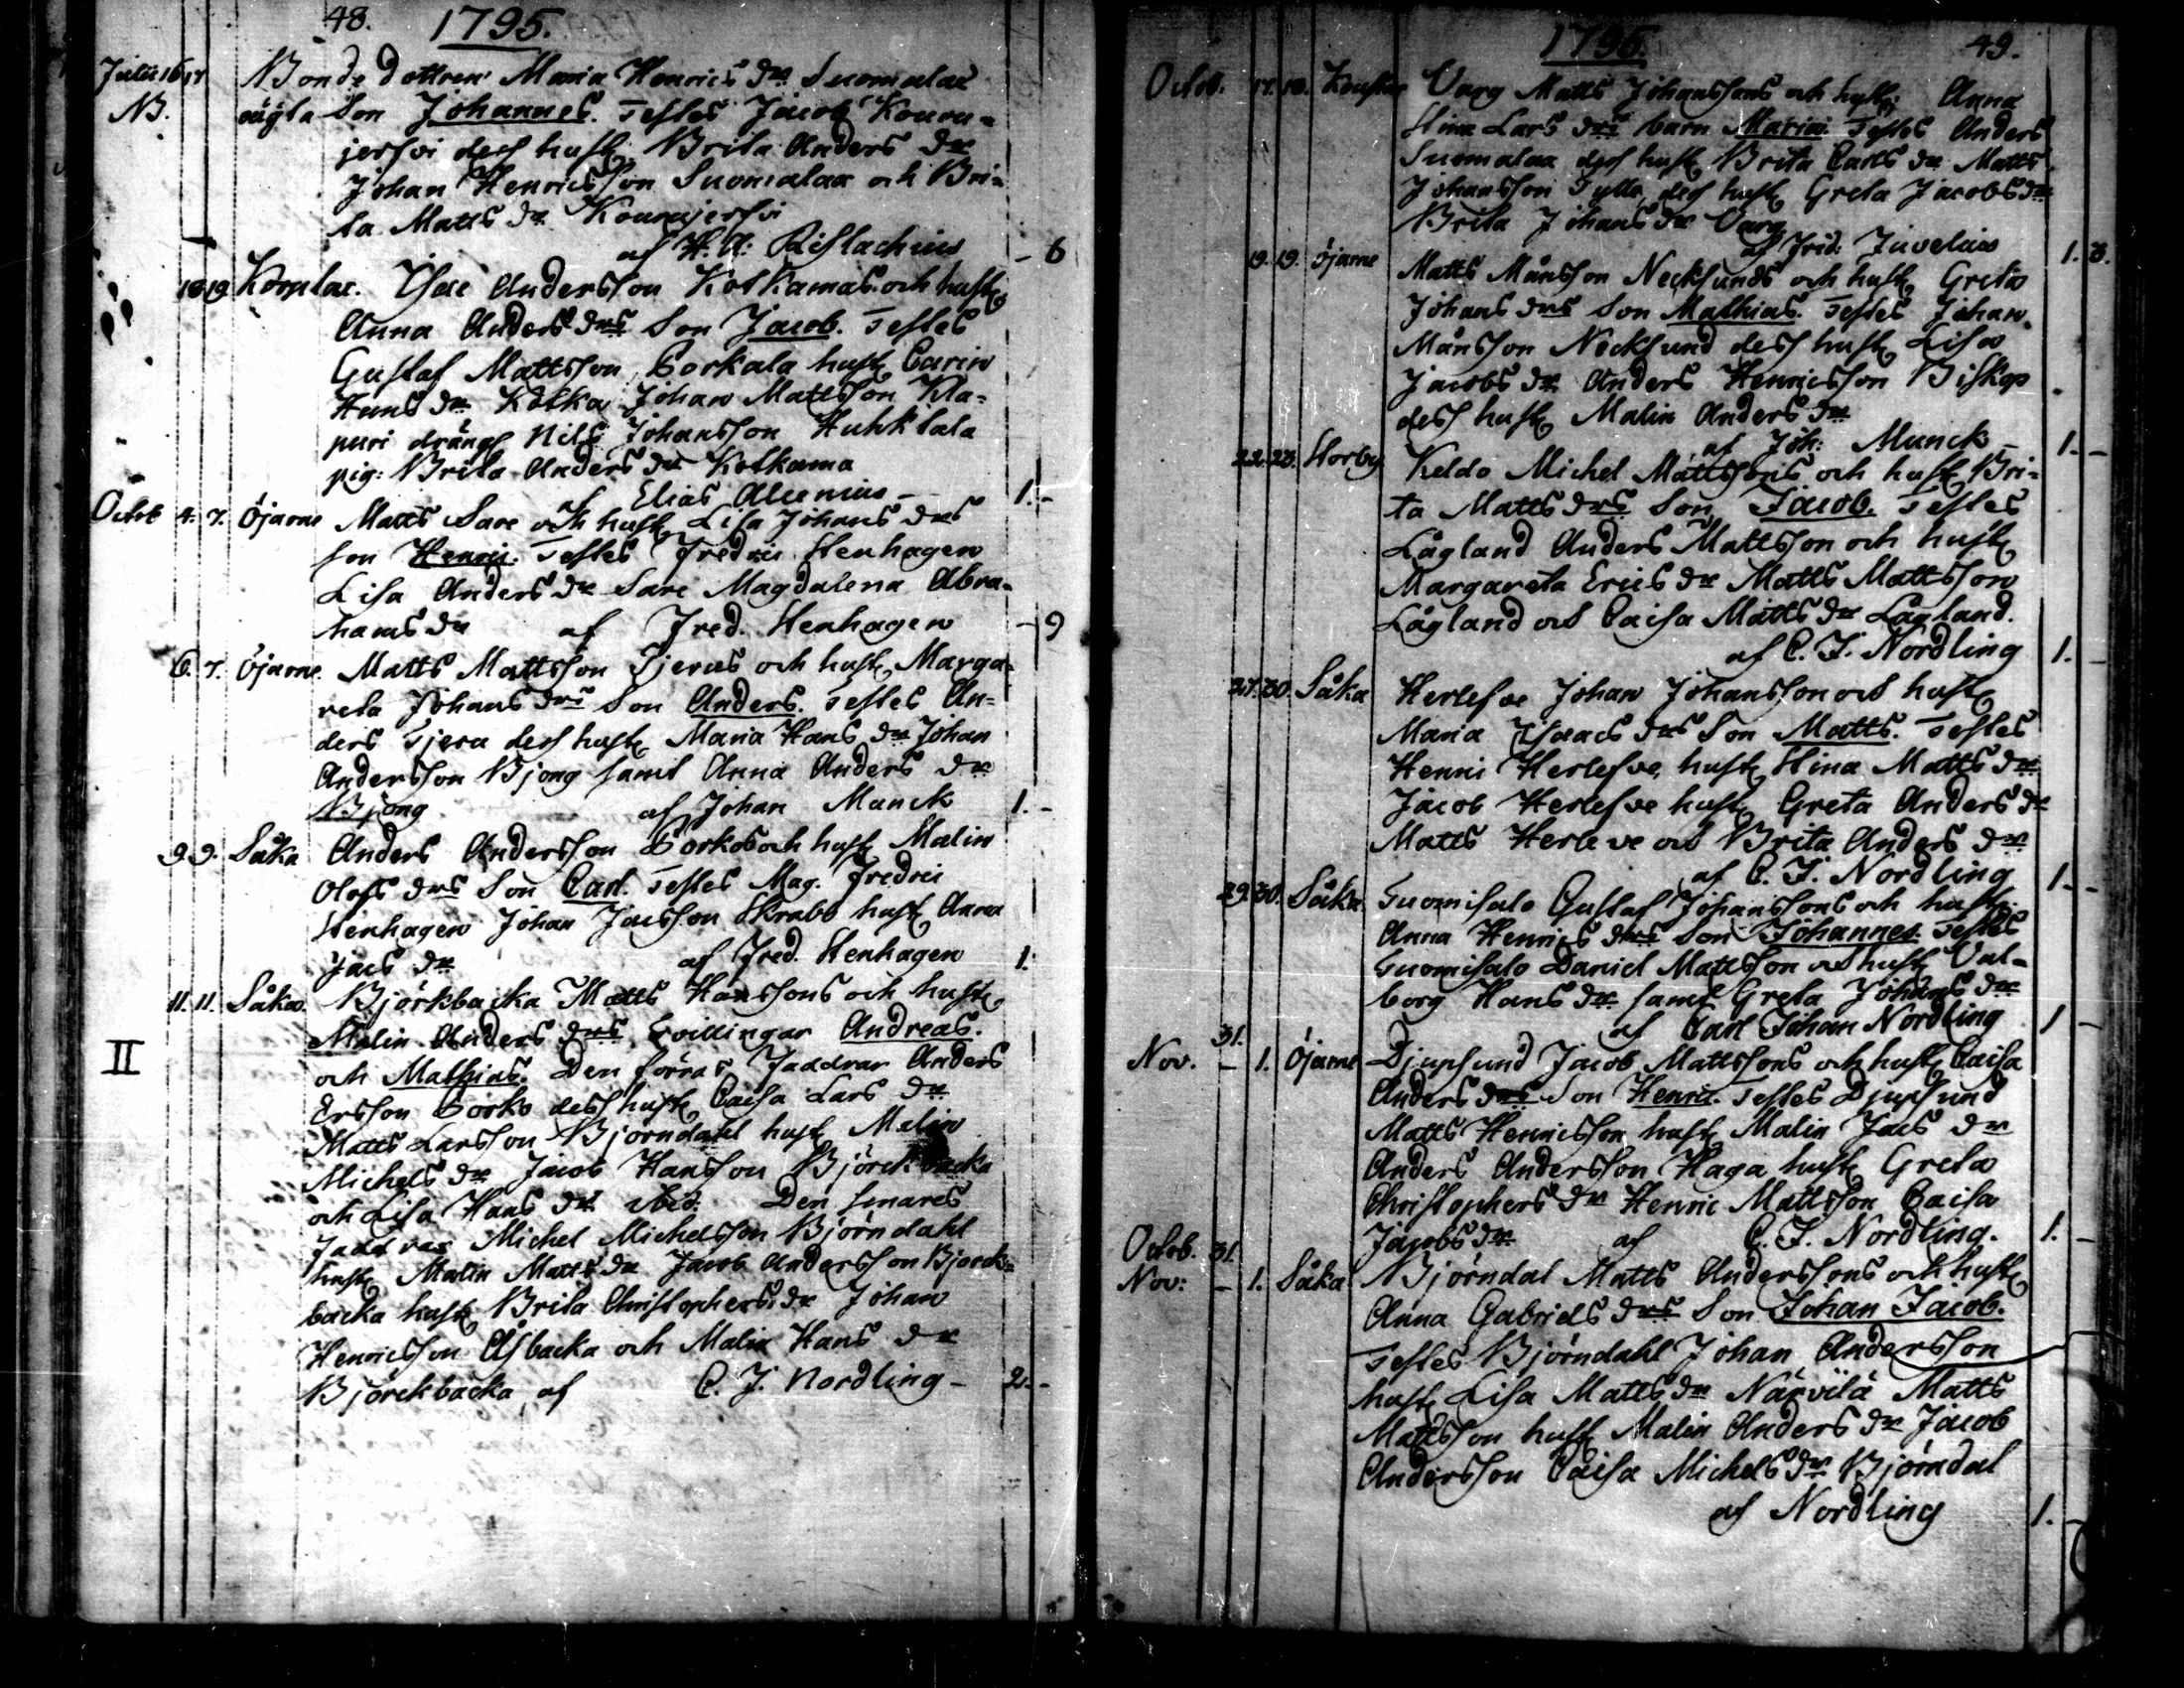 48. 1795.
Julii 16 17 Bonde Dottren Maria Henrics dr Suomalas
NB. oägta Son Johannes. Testes Jacob Koura-
jerfvi dess hust. Brita Anders dr
Johan Henricsson Suomalaa och Bri-
ta Matts dr Kourajerfvi
af H. A: Rislachius - 6
18 19 Korplax. Isac Andersson Kotkamas och hust.
Anna Anders drs Son Jacob. Testes
Gustaf Mattsson Corkala hust. Carin
Hans dr Kotka Johan Mattsson Kla-
puri drängs Nils Johansson Huhktala
pig: Brita Anders dr Kotkama
af Elias Alcenius - 1. -
Octob 4. 7. Öjarne Matts Sare och hust. Lisa Johans drs
son Henric. Testes Fredric Stenhagen
Lisa Anders dr Sare Magdalena Abra-
hams dr af Fred. Stenhagen - 9
6. 7. Öjarne Matts Mattsson Tjeras och hust. Marga-
reta Johans drs Son Anders. Testes An-
ders Tjera dess hust. Maria Hans dr Johan
Andersson Bjong samt Anna Anders dr
Bjong af Johan Munck 1. -
9 9. Såka Anders Andersson Sorkos och hust. Malin
Olofs drs Son Carl. Testes Mag. Fredric
Stenhagen Johan Jacsson Skrabb hust. Anna
Jacs dr af Fred. Stenhagen 1.
11. 11. Såka Björkbacka Matts Hanssons och hust.
Malin Anders drs Tvillingar Andreas.
II och Mathias. Den förras Faddrar Anders
Ersson Sorko dess hust. Caisa Lars dr
Matts Larsson Björndahl hust. Malin
Michels dr Jacob Hansson Björckbacka
och Lisa Hans dr ibid: Den senares
Faddrar Michel Michelsson Björndahl
hust. Malin Matts dr Jacob Andersson Bjorck-
backa hust. Brita Christophers dr Johan
Henricsson Åsbacka och Malin Hans dr
Björckbacka af C. J. Nordling - 2. -
1795. 49.
Octob. 17. 18. Varg Matts Johanssons och hust. Anna
Stina Lars drs barn Maria. Testes Anders
Suomalaa dess hust. Brita Carls dr Matts
Johansson Tylli dess hust. Greta Jacobs dr
Brita Johans dr Varg
af Frid. Juvelius 1. 8.
19. 19. Öjarne Matts Månsson Necksunds och hust. Greta
Johans drs Son Mathias. Testes Johan
Månsson Necksund dess hust. Lisa
Jacobs dr Anders Henricsson Biskop
dess hust. Malin Anders dr
af Joh: Munck 1. -
22. 23. Storby Keldo Michel Mattssons och hust. Bri-
ta Matts drs Son Jacob. Testes
Lågland Anders Mattsson och hust.
Margareta Erics dr Matts Mattsson
Lågland och Caisa Matts dr Lågland.
af C. J. Nordling 1. -
27. 30. Såka Herlefve Johan Johansson och hust.
Maria Isaacs drs Son Matts. Testes
Henric Herlefve hust. Stina Matts dr
Jacob Herlefve hust. Greta Anders dr
Matts Herleve och Brita Anders dr
af C. J. Nordling 1. -
29. 30. Såka Suomisalo Gustaf Johanssons och hust.
Anna Henrics drs Son Johannes Testes
Suomisalo Daniel Mattsson och hust. Val-
borg Hans dr samt Greta Johans dr
af Carl Johan Nordling 1 -
31.
Nov. - 1. Öjarne Djupsund Jacob Mattssons och hust. Caisa
Anders drs Son Henric. Testes Djupsund
Matts Henricsson hust. Malin Jacs dr
Anders Andersson Haga hust. Greta
Christophers dr Henric Mattsson Caisa
Jacobs dr af C. J. Nordling. 1. -
Octob. 31.
Nov: - 1. Såka Björndal Matts Anderssons och hust.
Anna Gabriels drs Son Johan Jacob.
Testes Björndahl Johan Andersson
hust. Lisa Matts dr Närvilä Matts
Mattsson hust. Malin Anders dr Jacob
Andersson Caisa Michels dr Björndal
af Nordling 1. -